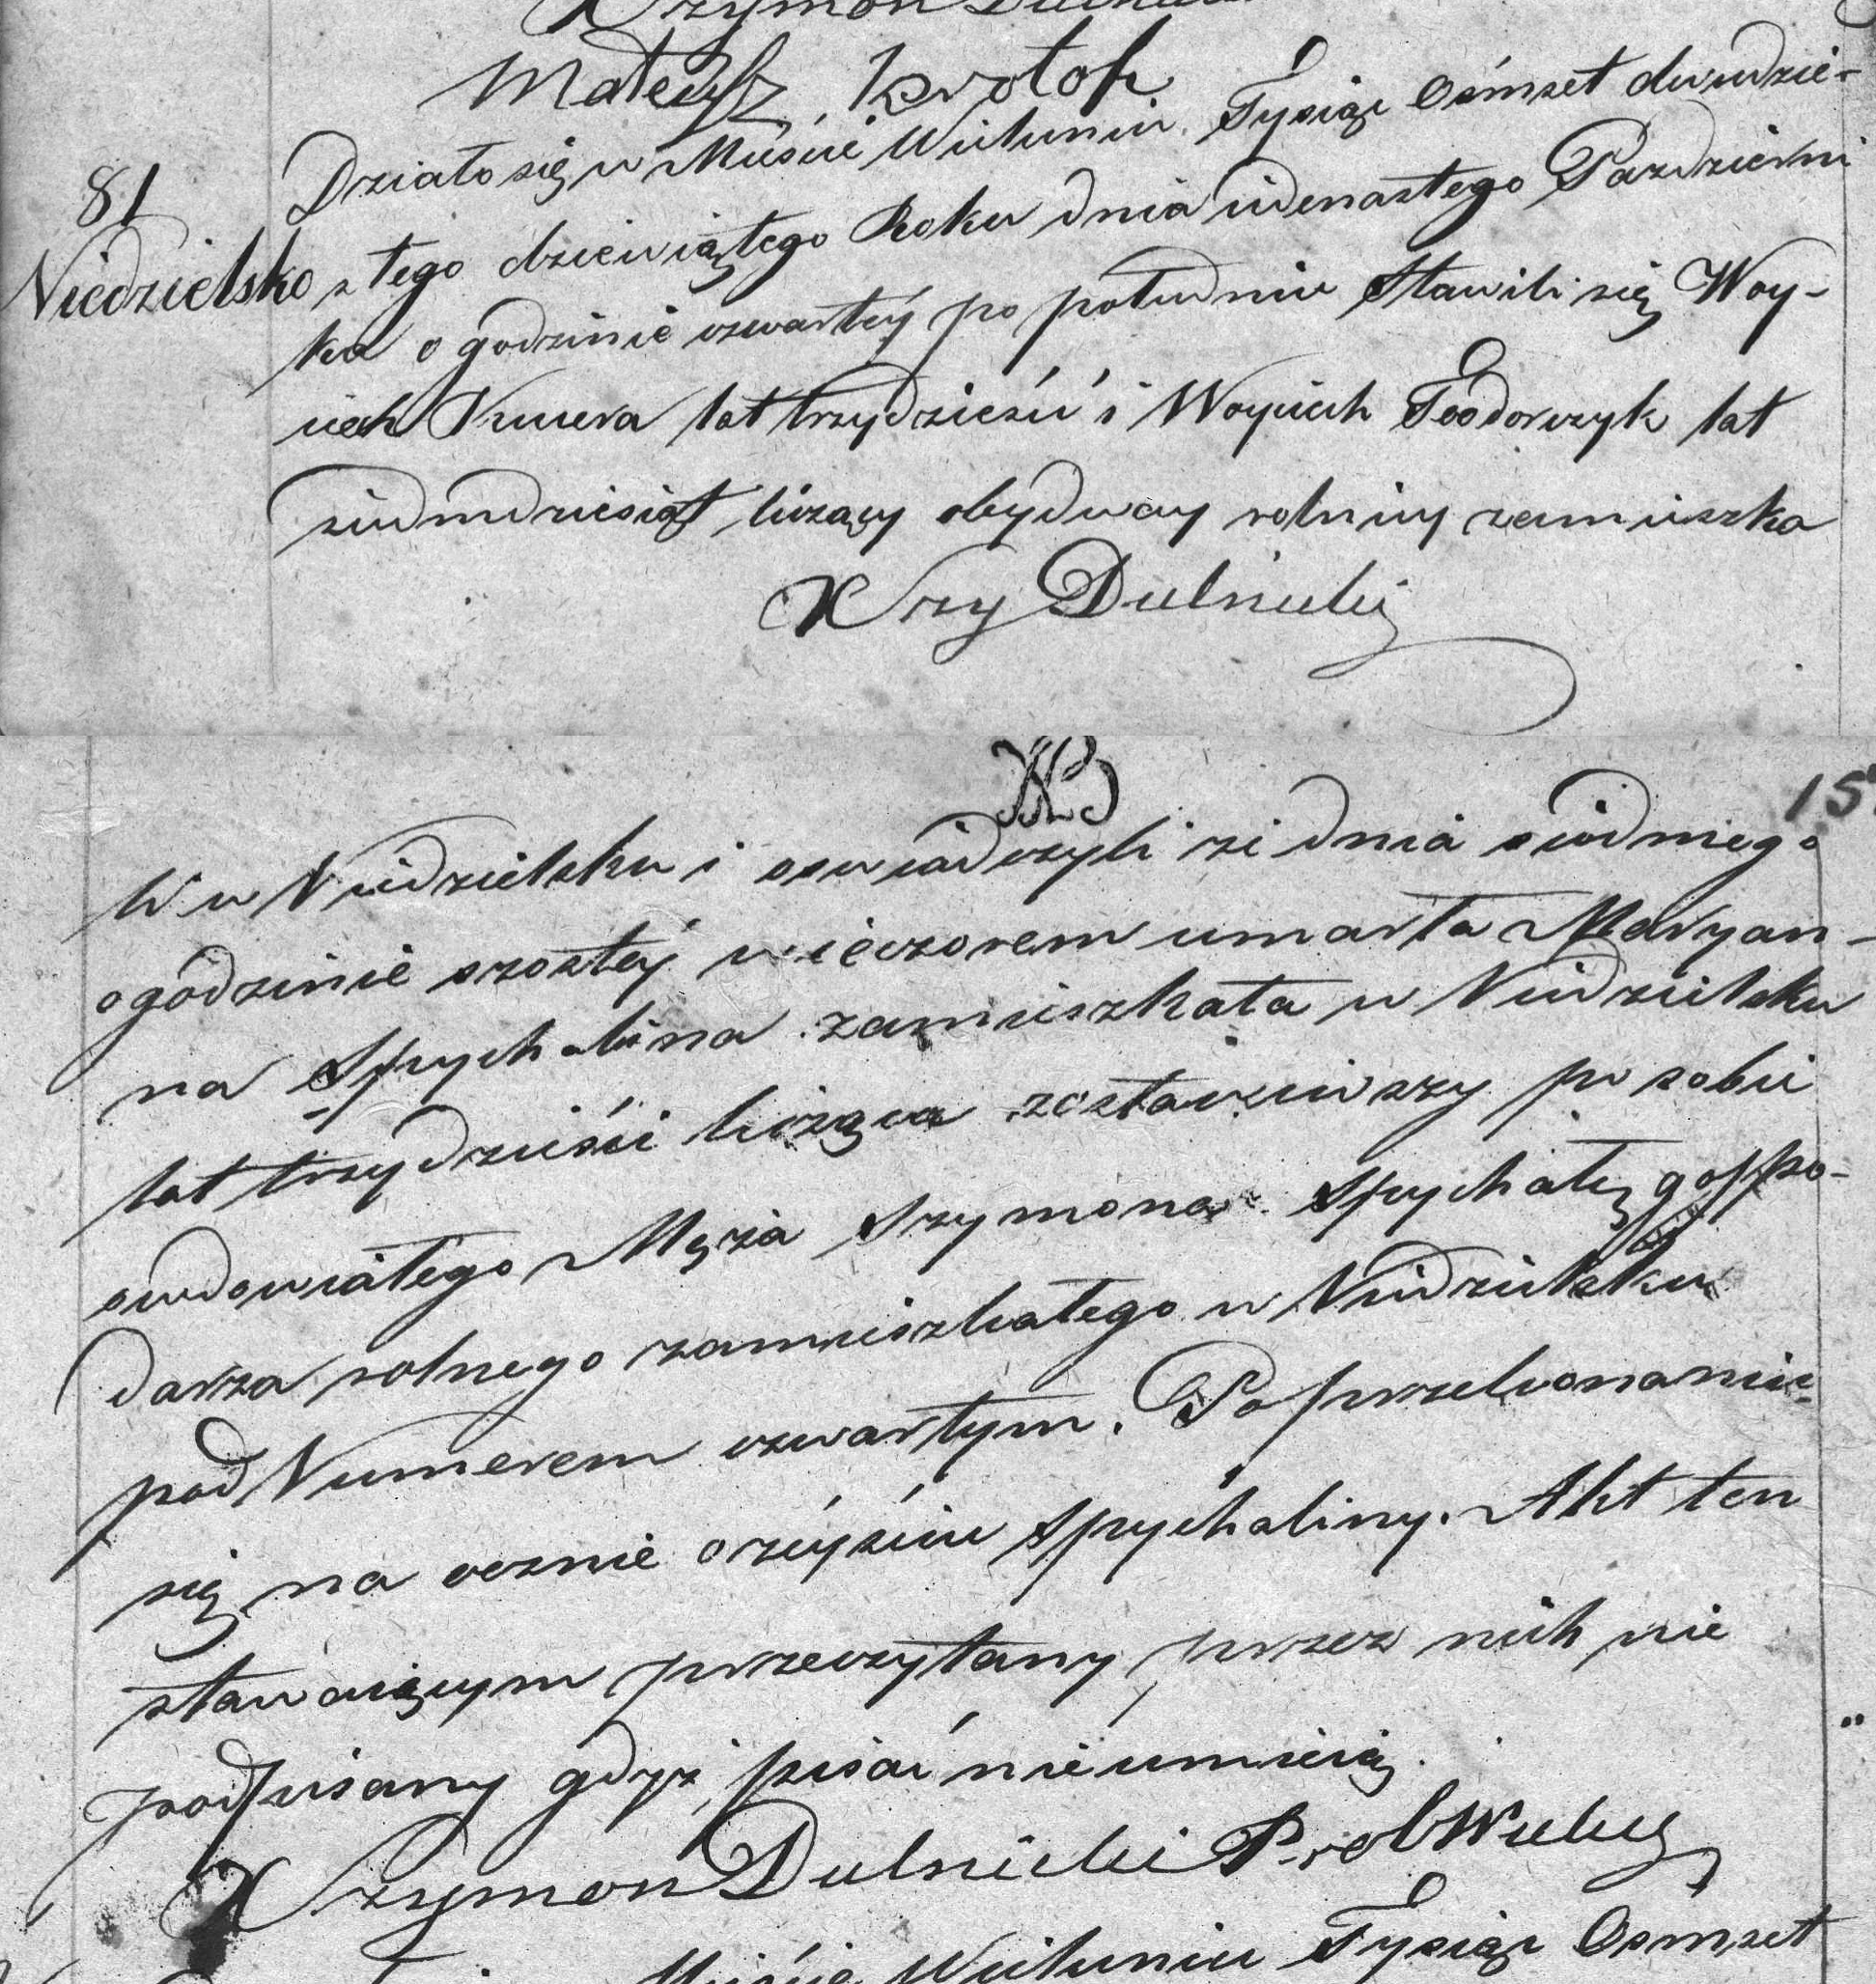 Mateusz Krolok
Działo się w Mieście Wieluniu Tysiąc Ośmset dwudzie-
81
Niedzielsko
stego dziewiątego Roku dnia iedenastego Pazdzierni
ka o godzinie czwartey po południu Stawili się Woy-
ciech Kucera lat trzydzieści i Woyciech Teodorczyk lat
siedmdziesiąt liczący obydway rolnicy zamieszka
X Szy Dulnicki
15
li w Niedzielsku i oswiadczyli ze dnia siódmego
o godzinie szostey wieczorem umarła Maryan-
na Spychalina zamieszkała w Niedzielsku
lat trzydzieści licząca zostawiwszy po sobie
owdowiałego Męża Szymona Spychałę gospo-
darza rolnego zamieszkałego w Niedzielsku
pod Numerem czwartym. Po przekonaniu
się na ocznie o zeyściu Spychaliny. Akt ten
stawaiącym przeczytany przez nich nie
podpisany gdyz pisać nieumieią.
X Szymon Dulnicki Prob Wielu
Mieście Wieluniu Tysiąc Osmset